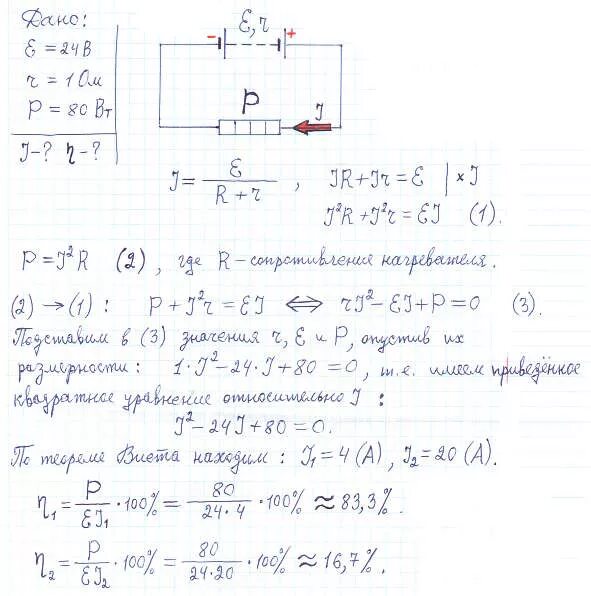 Дано:
Ɛ = 24 В
r = 1 Ом
P = 80 Вт
I-? η-?
Ɛ, r
- +
P
I
I = Ɛ / (R + r) , IR + Ir = Ɛ | × I
I²R + I²r = ƐI (1).
P = I²R (2), где R – сопротивление нагревателя.
(2) → (1): P + I²r = ƐI ⟺ rI² - ƐI + P = 0 (3).
Подставим в (3) значения r, Ɛ и P, опустив их
размерности: 1·I² - 24·I + 80 = 0, т.е. имеем приведённое
квадратное уравнение относительно I:
I² - 24I + 80 = 0.
По теореме Виета находим: I₁ = 4 (А), I₂ = 20 (А).
η₁ = P / ƐI₁ · 100% = 80 / 24·4 · 100% ≈ 83,3%.
η₂ = P / ƐI₂ · 100% = 80 / 24·20 · 100% ≈ 16,7%.